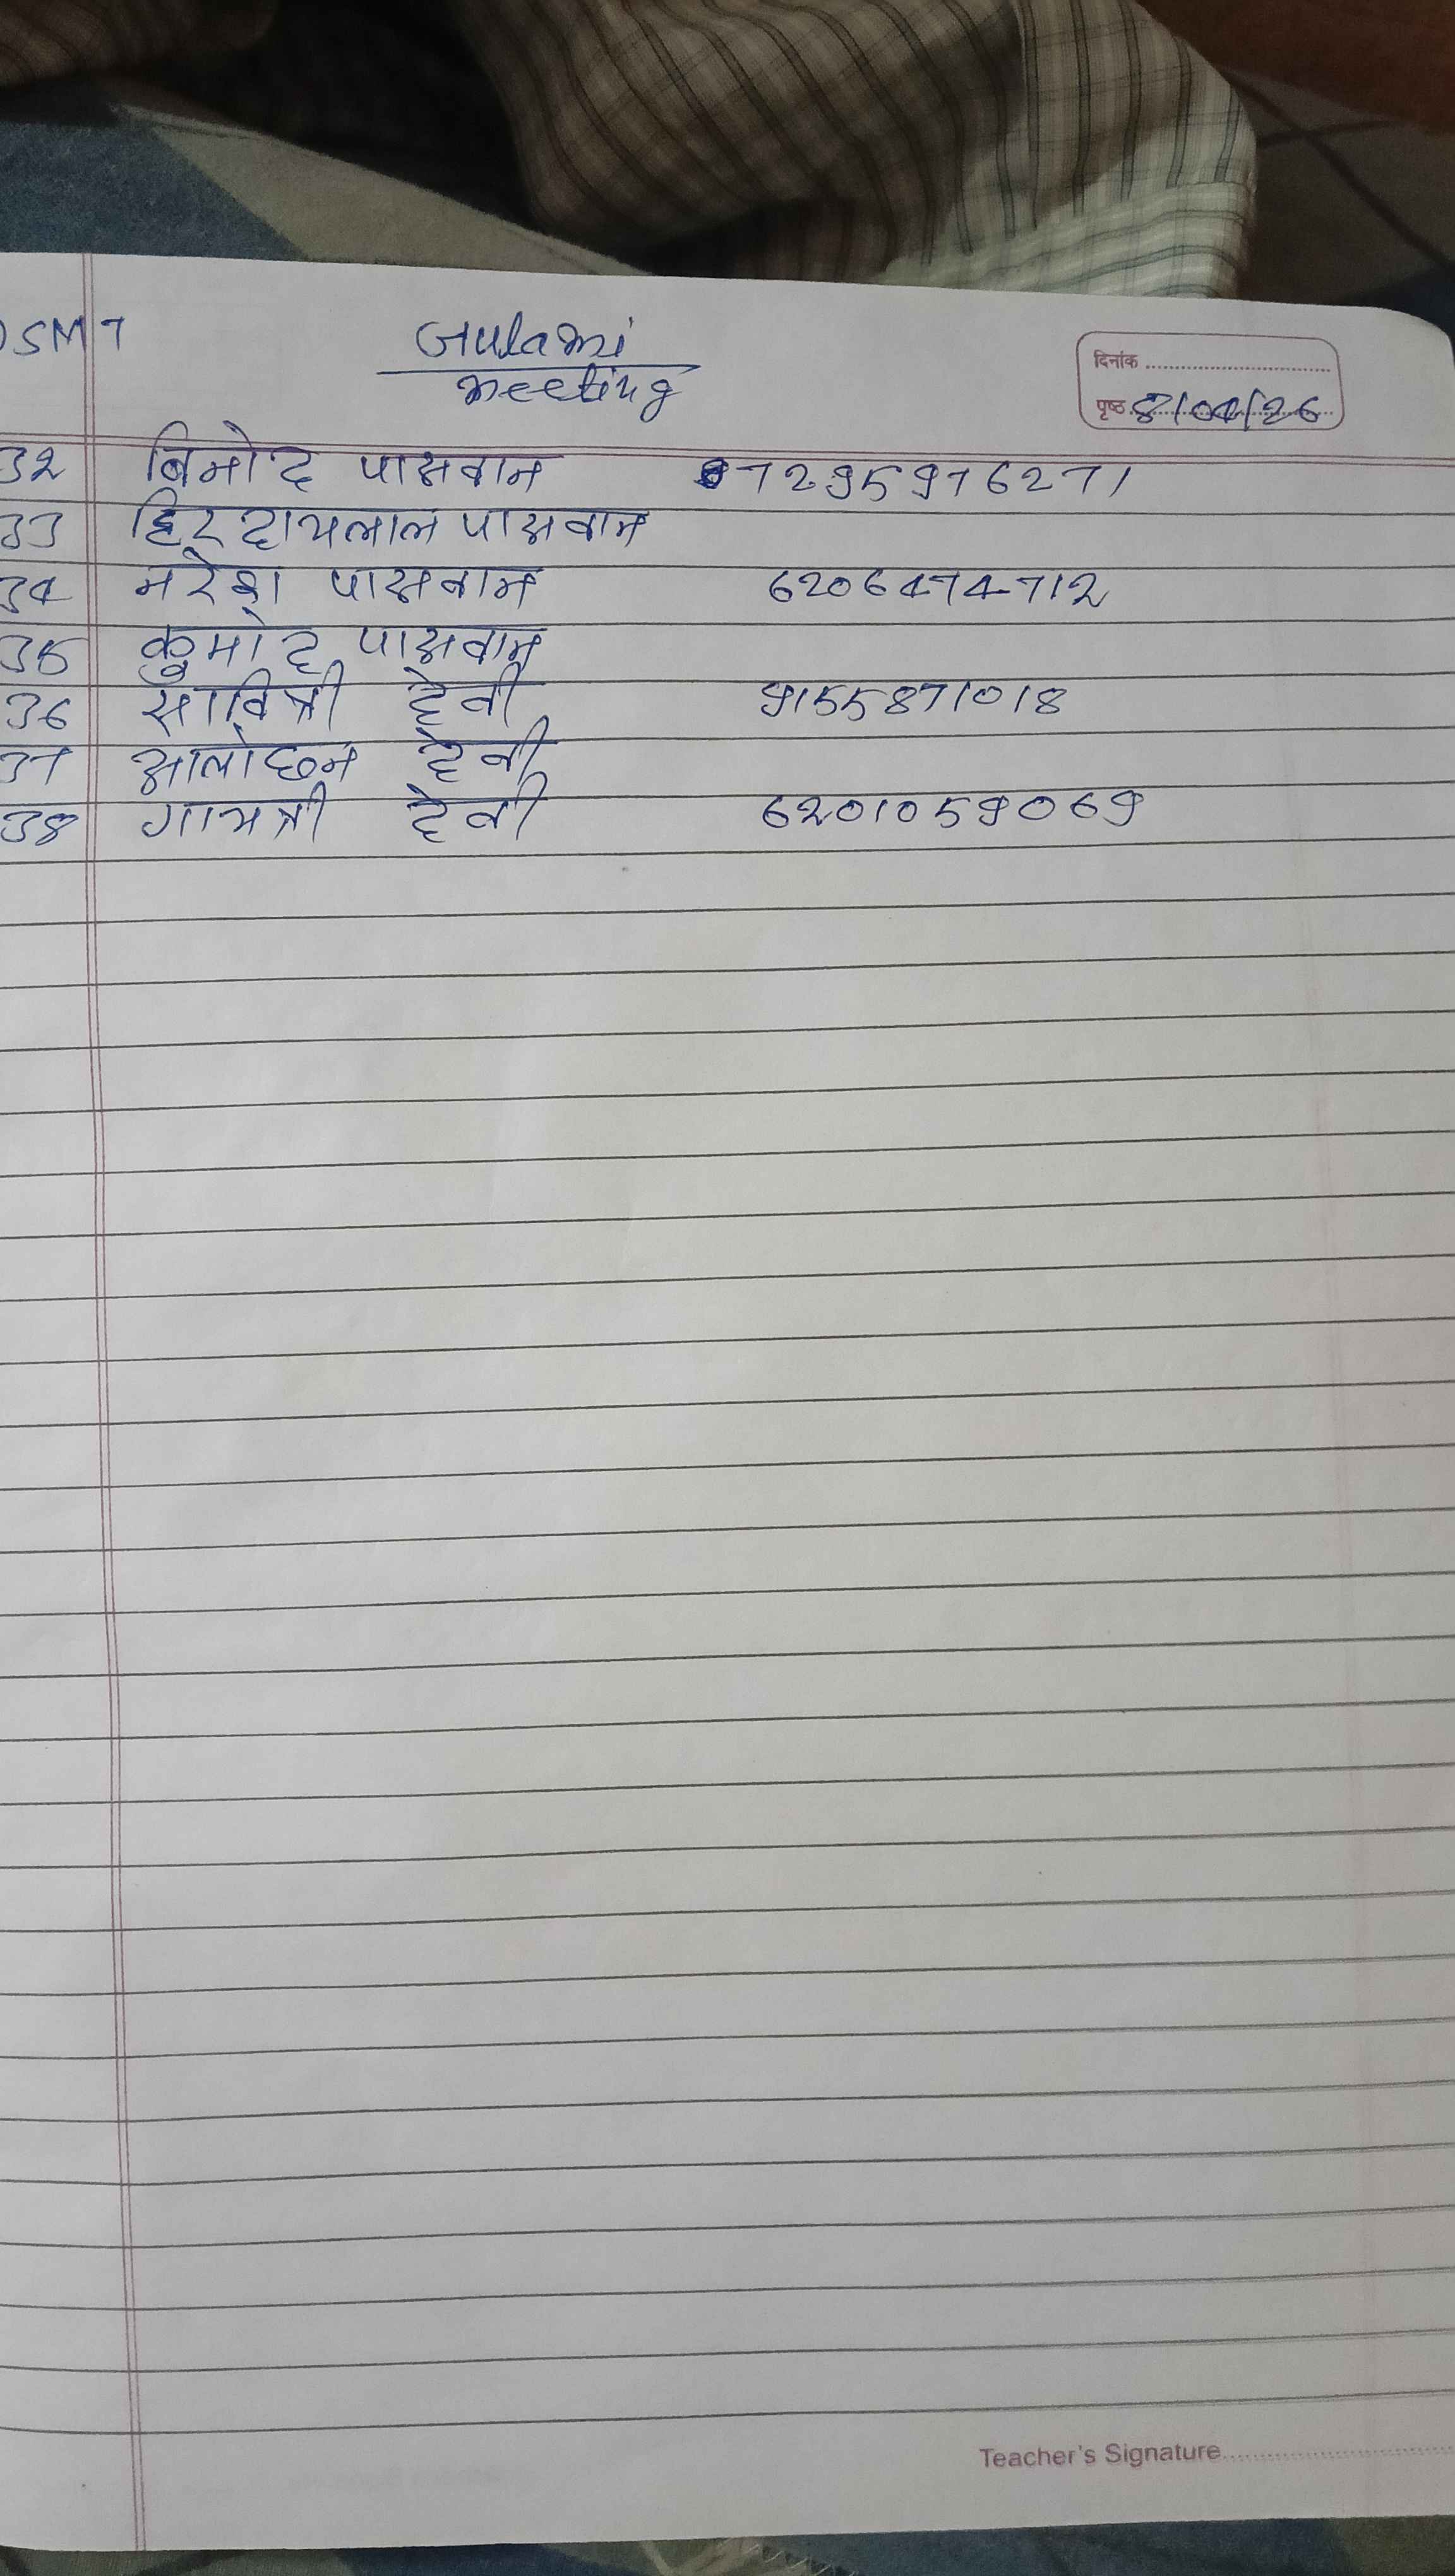 OSM7
Gulami
meeting
दिनांक
पृष्ठ 8/04/26
32 बिनोद पासवान 7295976271
33 हिरदायलाल पासवान
34 नरेश पासवान 6206474712
35 कुमोद पासवान
36 सावित्री देवी 9155871018
37 आलोछन देवी
38 गायत्री देवी 6201059069
Teacher's Signature